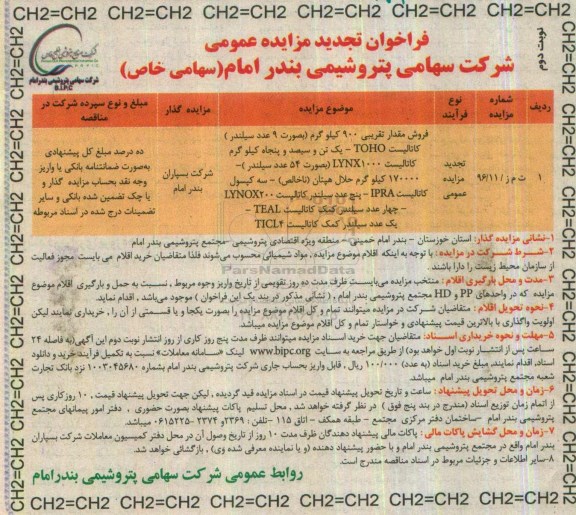 CH2=CH2 CH2=CH2 CH2=CH2 CH2=CH2 CH2=CH2 CH2=CH2 CH2=CH2
نوبت دوم
فراخوان تجدید مزایده عمومی
شرکت سهامی پتروشیمی بندر امام(سهامی خاص)
شرکت سهامی پتروشیمی بندرامام
B.I.P.C
ردیف
شماره مزایده
نوع فرآیند
موضوع مزایده
مزایده گذار
مبلغ و نوع سپرده شرکت در مناقصه
۱
ت م ز /۹۶/۱۱
تجدید مزایده عمومی
فروش مقدار تقریبی ۹۰۰ کیلو گرم (بصورت ۹ عدد سیلندر )
کاتالیست TOHO - یک تن و سیصد و پنجاه کیلو گرم
کاتالیست LYNX۱۰۰۰ (بصورت ۵۴ عدد سیلندر )-
۱۷۰۰۰۰ کیلو گرم حلال هپتان (ناخالص) - سه کپسول
کاتالیست IPRA - پنج عدد سیلندر کاتالیست LYNOX۲۰۰
- چهار عدد سیلندر کمک کاتالیست TEAL -
یک عدد سیلندر کمک کاتالیست TICL۴
شرکت بسپاران بندر امام
ده درصد مبلغ کل پیشنهادی
به‌صورت ضمانتنامه بانکی یا واریز
وجه نقد بحساب مزایده گذار و
یا چک تضمین شده بانکی و سایر
تضمینات درج شده در اسناد مربوطه
ParsNamadData
۱-نشانی مزایده گذار: استان خوزستان - بندر امام خمینی - منطقه ویژه اقتصادی پتروشیمی -مجتمع پتروشیمی بندر امام
۲-شرط شرکت در مزایده : با توجه به اینکه اقلام موضوع مزایده ، مواد شیمیائی محسوب می‌شوند فلذا متقاضیان خرید اقلام می بایست مجوز فعالیت
از سازمان محیط زیست را دارا باشند .
۳-مدت و محل بارگیری اقلام : منتخب مزایده می‌بایست ظرف مدت ده روز تقویمی از تاریخ واریز وجوه مربوط ، نسبت به حمل و بارگیری اقلام موضوع
مزایده که در واحدهای PP و HD مجتمع پتروشیمی بندر امام , ( نشانی مذکور در بند یک این فراخوان ) موجود می‌باشد , اقدام نماید.
۴-نحوه تحویل اقلام : متقاضیان شرکت در مزایده میتوانند تمام و کل اقلام موضوع مزایده را بصورت یکجا و یا قسمتی از آن را , خریداری نمایند لیکن
اولویت واگذاری با بالاترین قیمت پیشنهادی و خواستار تمام و کل اقلام موضوع مزایده میباشد.
۵-مهلت و نحوه خریداری اسناد: متقاضیان جهت خرید اسناد مزایده میتوانند ظرف مدت پنج روز کاری از روز انتشار نوبت دوم این آگهی(به فاصله ۲۴
ساعت پس از انتشار نوبت اول خواهد بود) از طریق مراجعه به سایت www.bipc.org لینک «سامانه معاملات» نسبت به تکمیل فرآیند خرید و دانلود
اسناد, اقدام نمایند. مبلغ خرید اسناد (به عدد) ۱۰۰/۰۰۰ ریال , قابل واریز بحساب جاری شرکت پتروشیمی بندر امام بشماره ۱۰۰۳۰۴۵۶۸۰ نزد بانک تجارت
شعبه مجتمع پتروشیمی بندر امام میباشد.
۶-زمان و محل تحویل پیشنهاد : ساعت و تاریخ تحویل پیشنهاد قیمت در اسناد مزایده قید گردیده , لیکن جهت تحویل پیشنهاد قیمت , ۱۰ روزکاری پس
از اتمام زمان توزیع اسناد (مندرج در بند پنج فوق ) در نظر گرفته خواهد شد , محل تسلیم پاکات پیشنهاد بصورت حضوری , دفتر امور پیمانهای مجتمع
پتروشیمی بندر امام -ساختمان دفتر مرکزی مجتمع - طبقه همکف - اتاق ۱۱۵ -تلفن : ۲۳۶۹و ۲۳۷۴ -۰۶۱۵۲۲۵ میباشد.
۷-زمان و محل گشایش پاکات مالی : پاکات مالی پیشنهاد دهندگان ظرف مدت ۱۰ روز از تاریخ وصول آن در محل دفتر کمیسیون معاملات شرکت بسپاران
بندر امام واقع در مجتمع پتروشیمی بندر امام و با حضور پیشنهاد دهنده (و یا نماینده معرفی شده وی) , بازگشائی خواهد شد.
۸-سایر اطلاعات و جزئیات مربوط در اسناد مناقصه مندرج است.
روابط عمومی شرکت سهامی پتروشیمی بندرامام
CH2=CH2 CH2=CH2 CH2=CH2 CH2=CH2 CH2=CH2 CH2=CH2 CH2=CH2